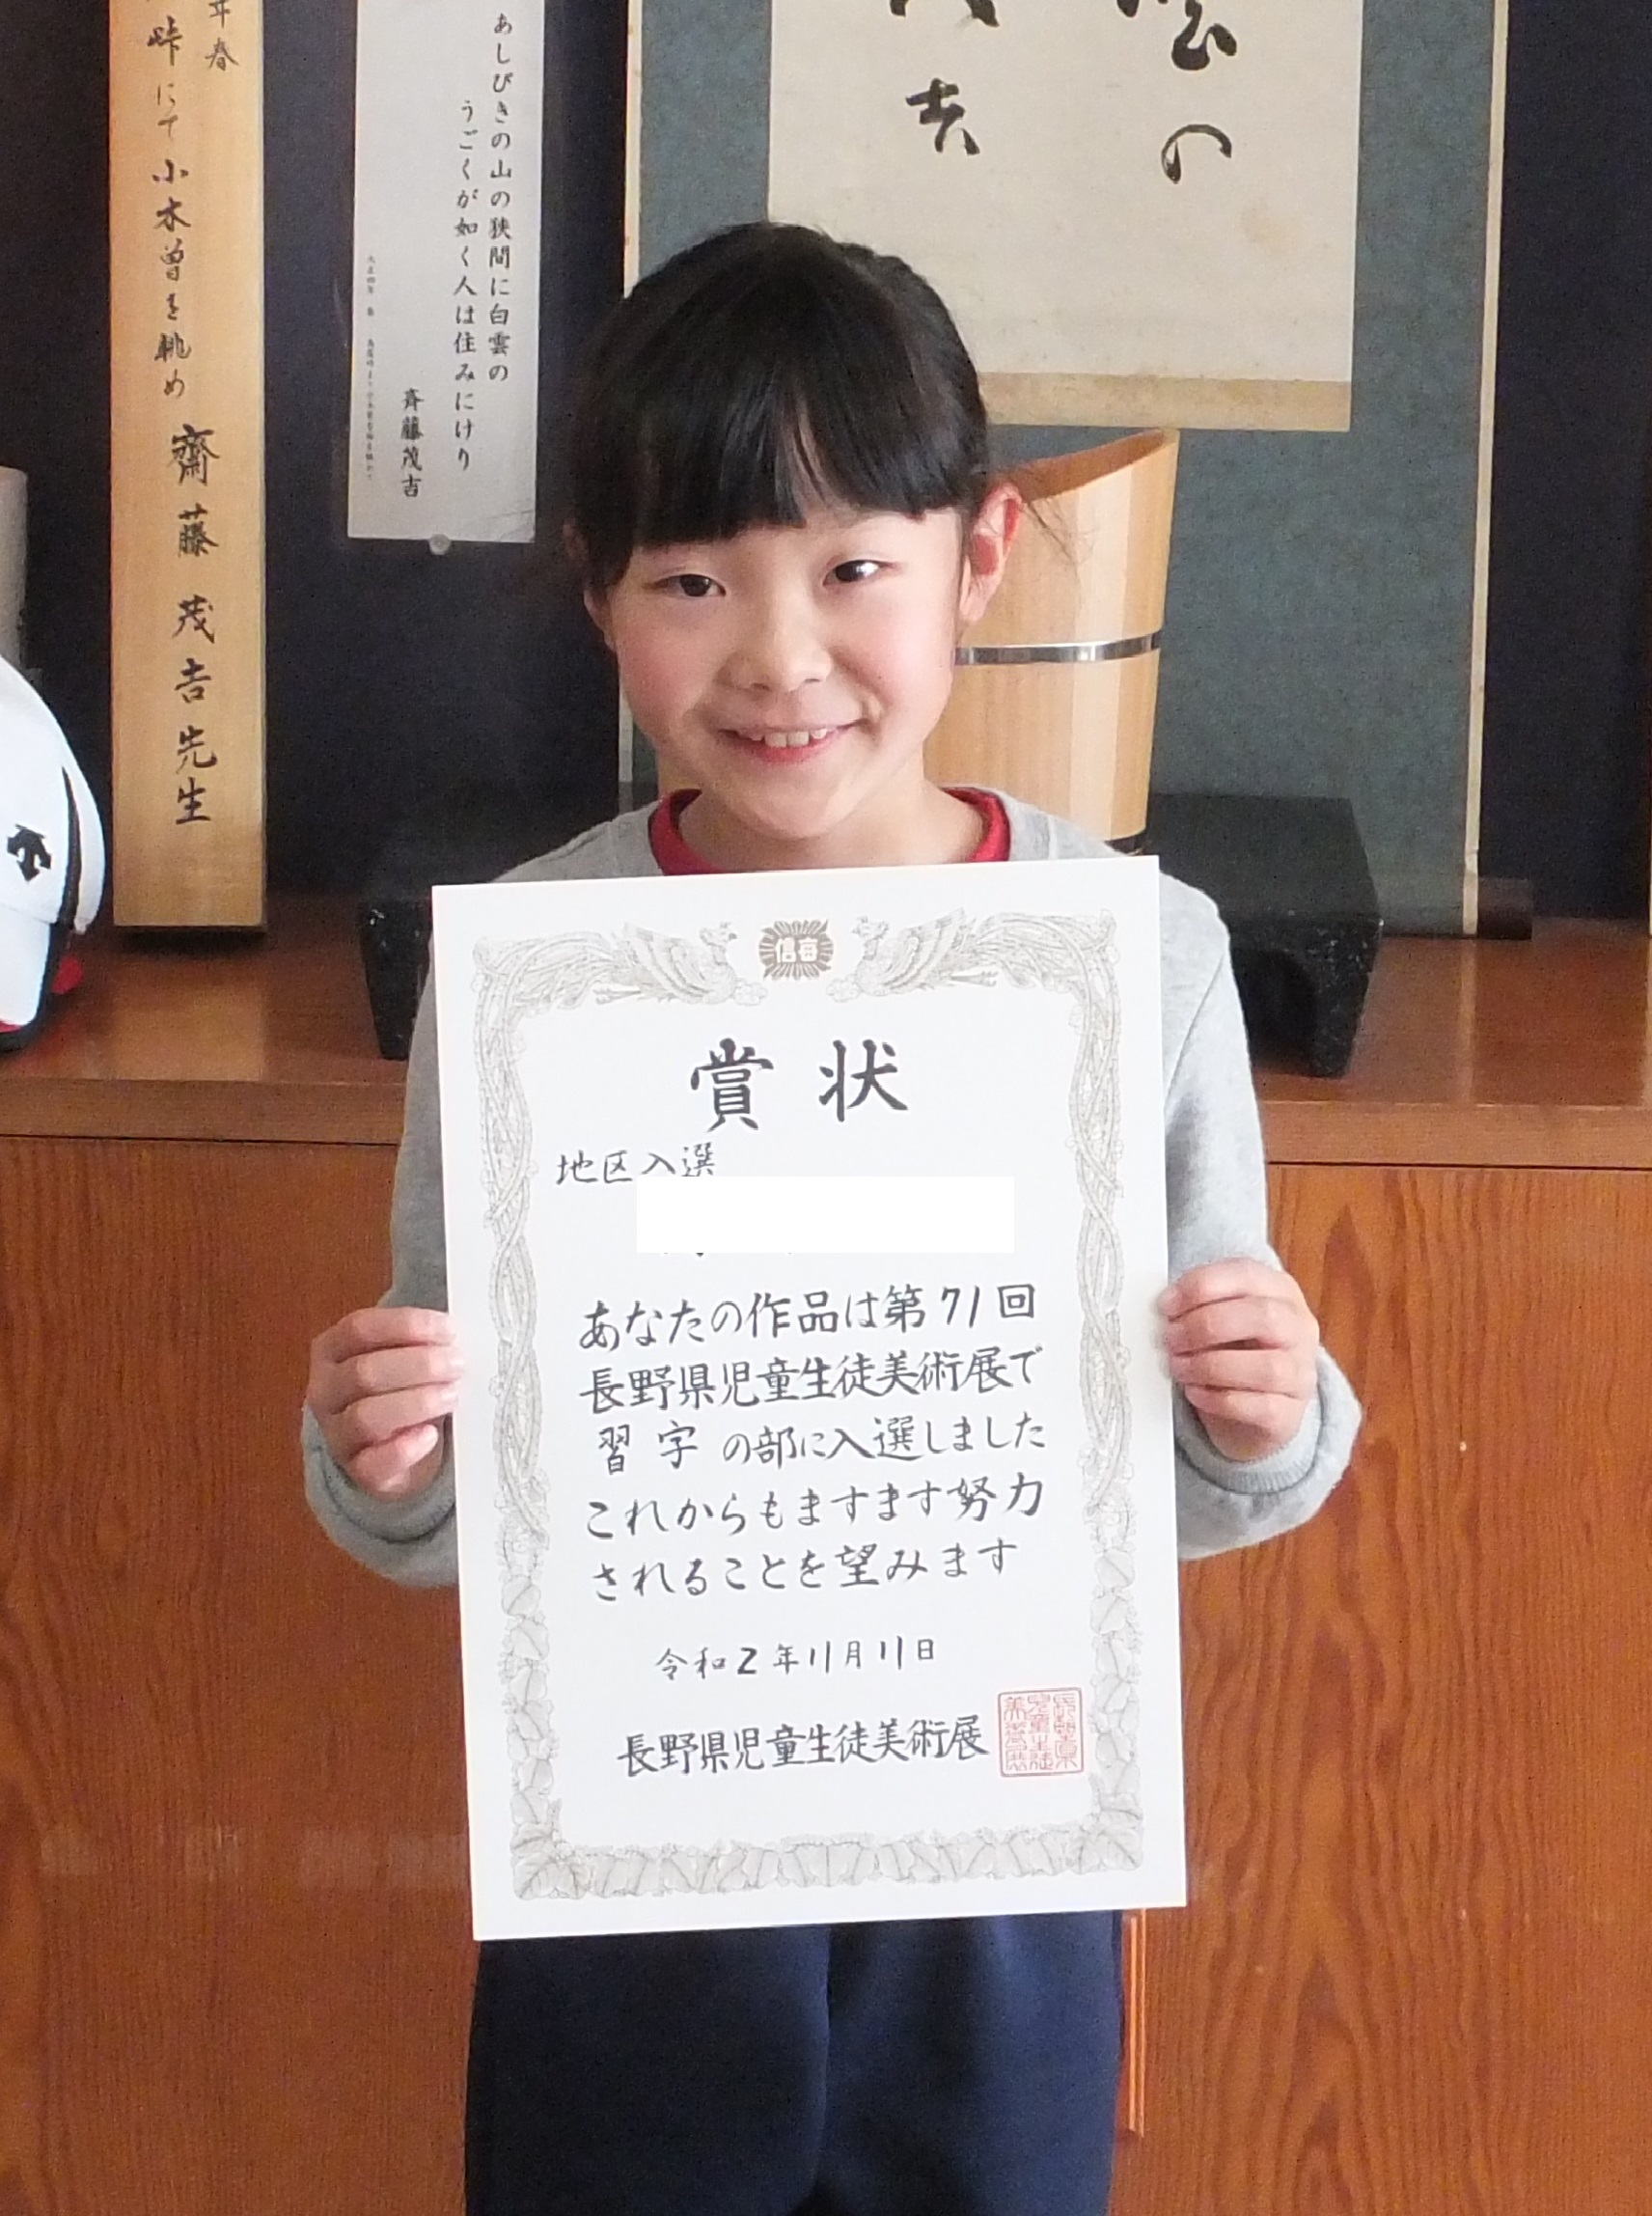 年春
峠にて小木曽を眺め 齋藤茂吉先生
あしびきの山の狭間に白雲の
うごくが如く人は住みにけり
斉藤茂吉
の
茂吉
信毎
賞状
地区入選
あなたの作品は第71回
長野県児童生徒美術展で
習字の部に入選しました
これからもますます努力
されることを望みます
令和2年11月11日
長野県児童生徒美術展